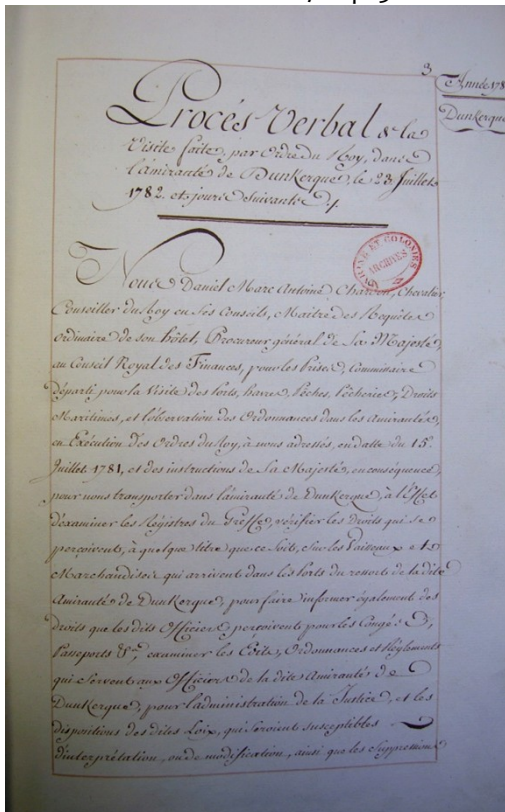 3
Année 178
Dunkerque
Procés Verbal de la
Visite faite, par Ordre du Roy, dans
l'amirauté de Dunkerque, le 23 Juillet
1782. et jours suivants ./.
MARINE ET COLONIES
ARCHIVES
Nous Daniel Marc Antoine Chardon, Chevalier,
Conseiller du Roy en Ses Conseils, Maître des Requêtes
ordinaire de son hôtel, Procureur général de Sa Majesté,
au Conseil Royal des Finances, pour les Prises, Commissaire
départi pour la Visite des Ports, havres, Pêches, Pêcheries, Droits
Maritimes, et l'observation des Ordonnances dans les Amirautés,
en Exécution des Ordres du Roy, à nous adressés, en datte du 15.
Juillet 1781, et des instructions de Sa Majesté, en conséquence,
pour nous transporter dans l'amirauté de Dunkerque, à l'Effet
d'examiner les Régistres du Greffe, vérifier les droits qui se
perçoivent, à quelque titre que ce soit, sur les Vaisseaux et
Marchandises qui arrivent dans les Ports du ressort de la dite
Amirauté de Dunkerque, pour faire informer également des
droits que les dits Officiers perçoivent pour les Congés,
Passeports &ca, examiner les Edits, Ordonnances et Réglements
qui Servent aux Officiers de la dite Amirauté de
Dunkerque, pour l'administration de la Justice, et les
dispositions des dites Loix, qui Seroient susceptibles
d'interprétation, ou de modification, ainsi que les Suppressions